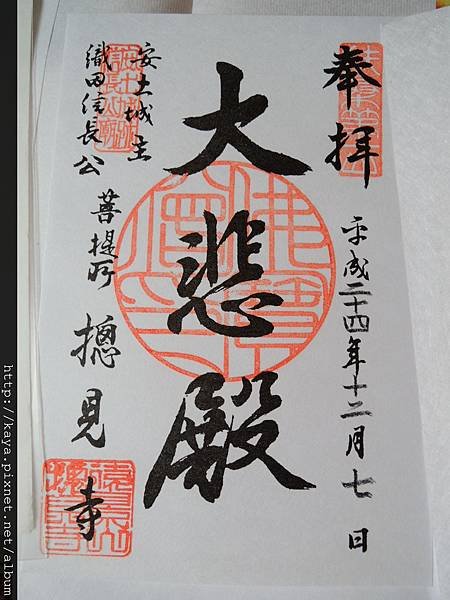 奉拝
平成二十四年十二月七日
大悲殿
安土城主
織田信長公
菩提所
摠見寺
http://kaya.pixnet.net/album